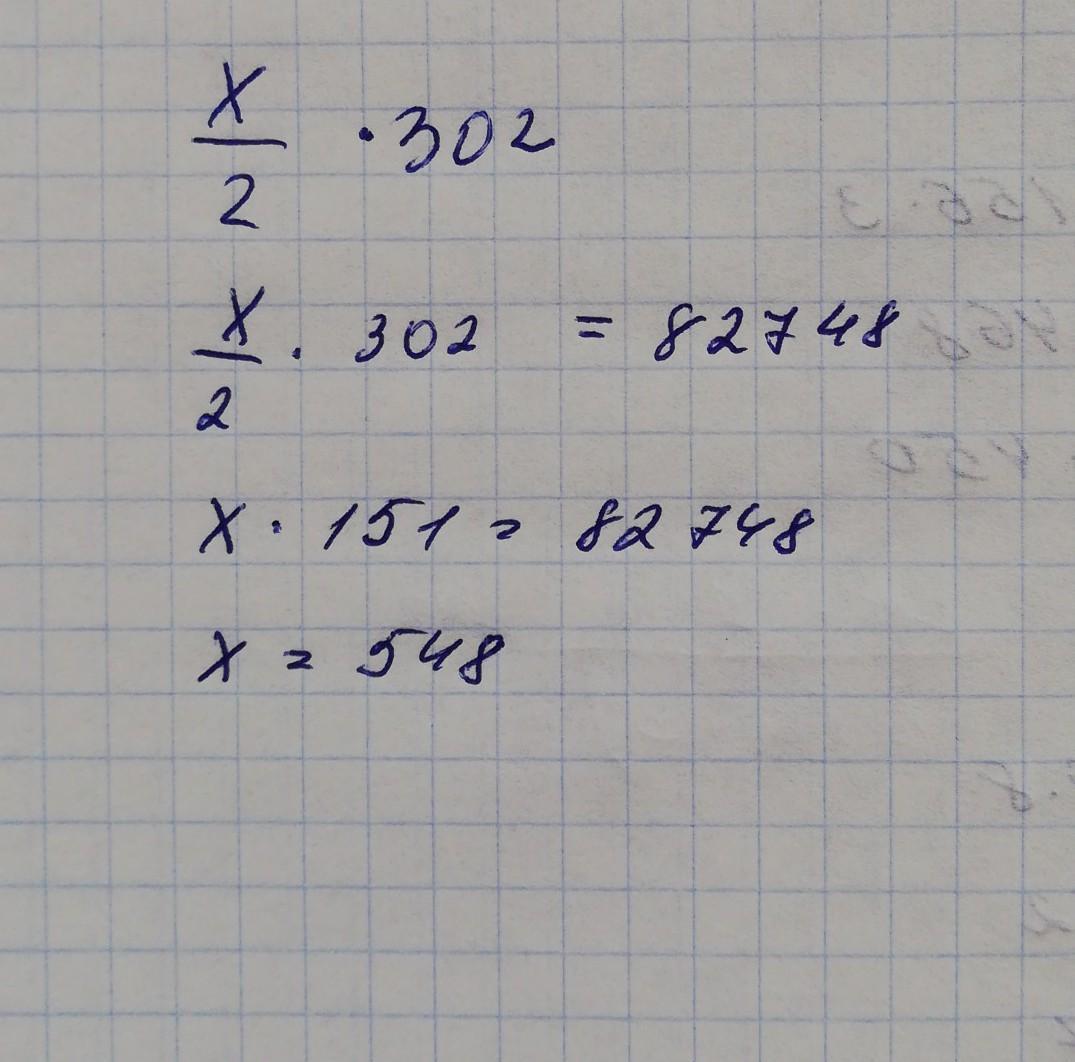 x/2 · 302
x/2 · 302 = 82748
x · 151 = 82748
x = 548